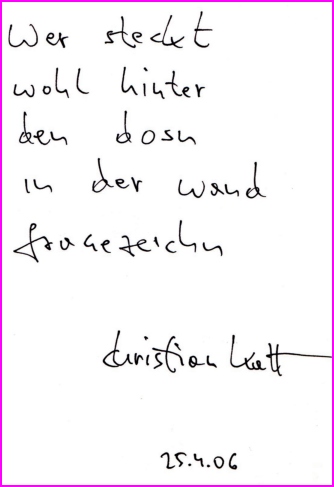 Wer steckt
wohl hinter
den dosn
in der wand
fragezeichn
christian katt
25.4.06